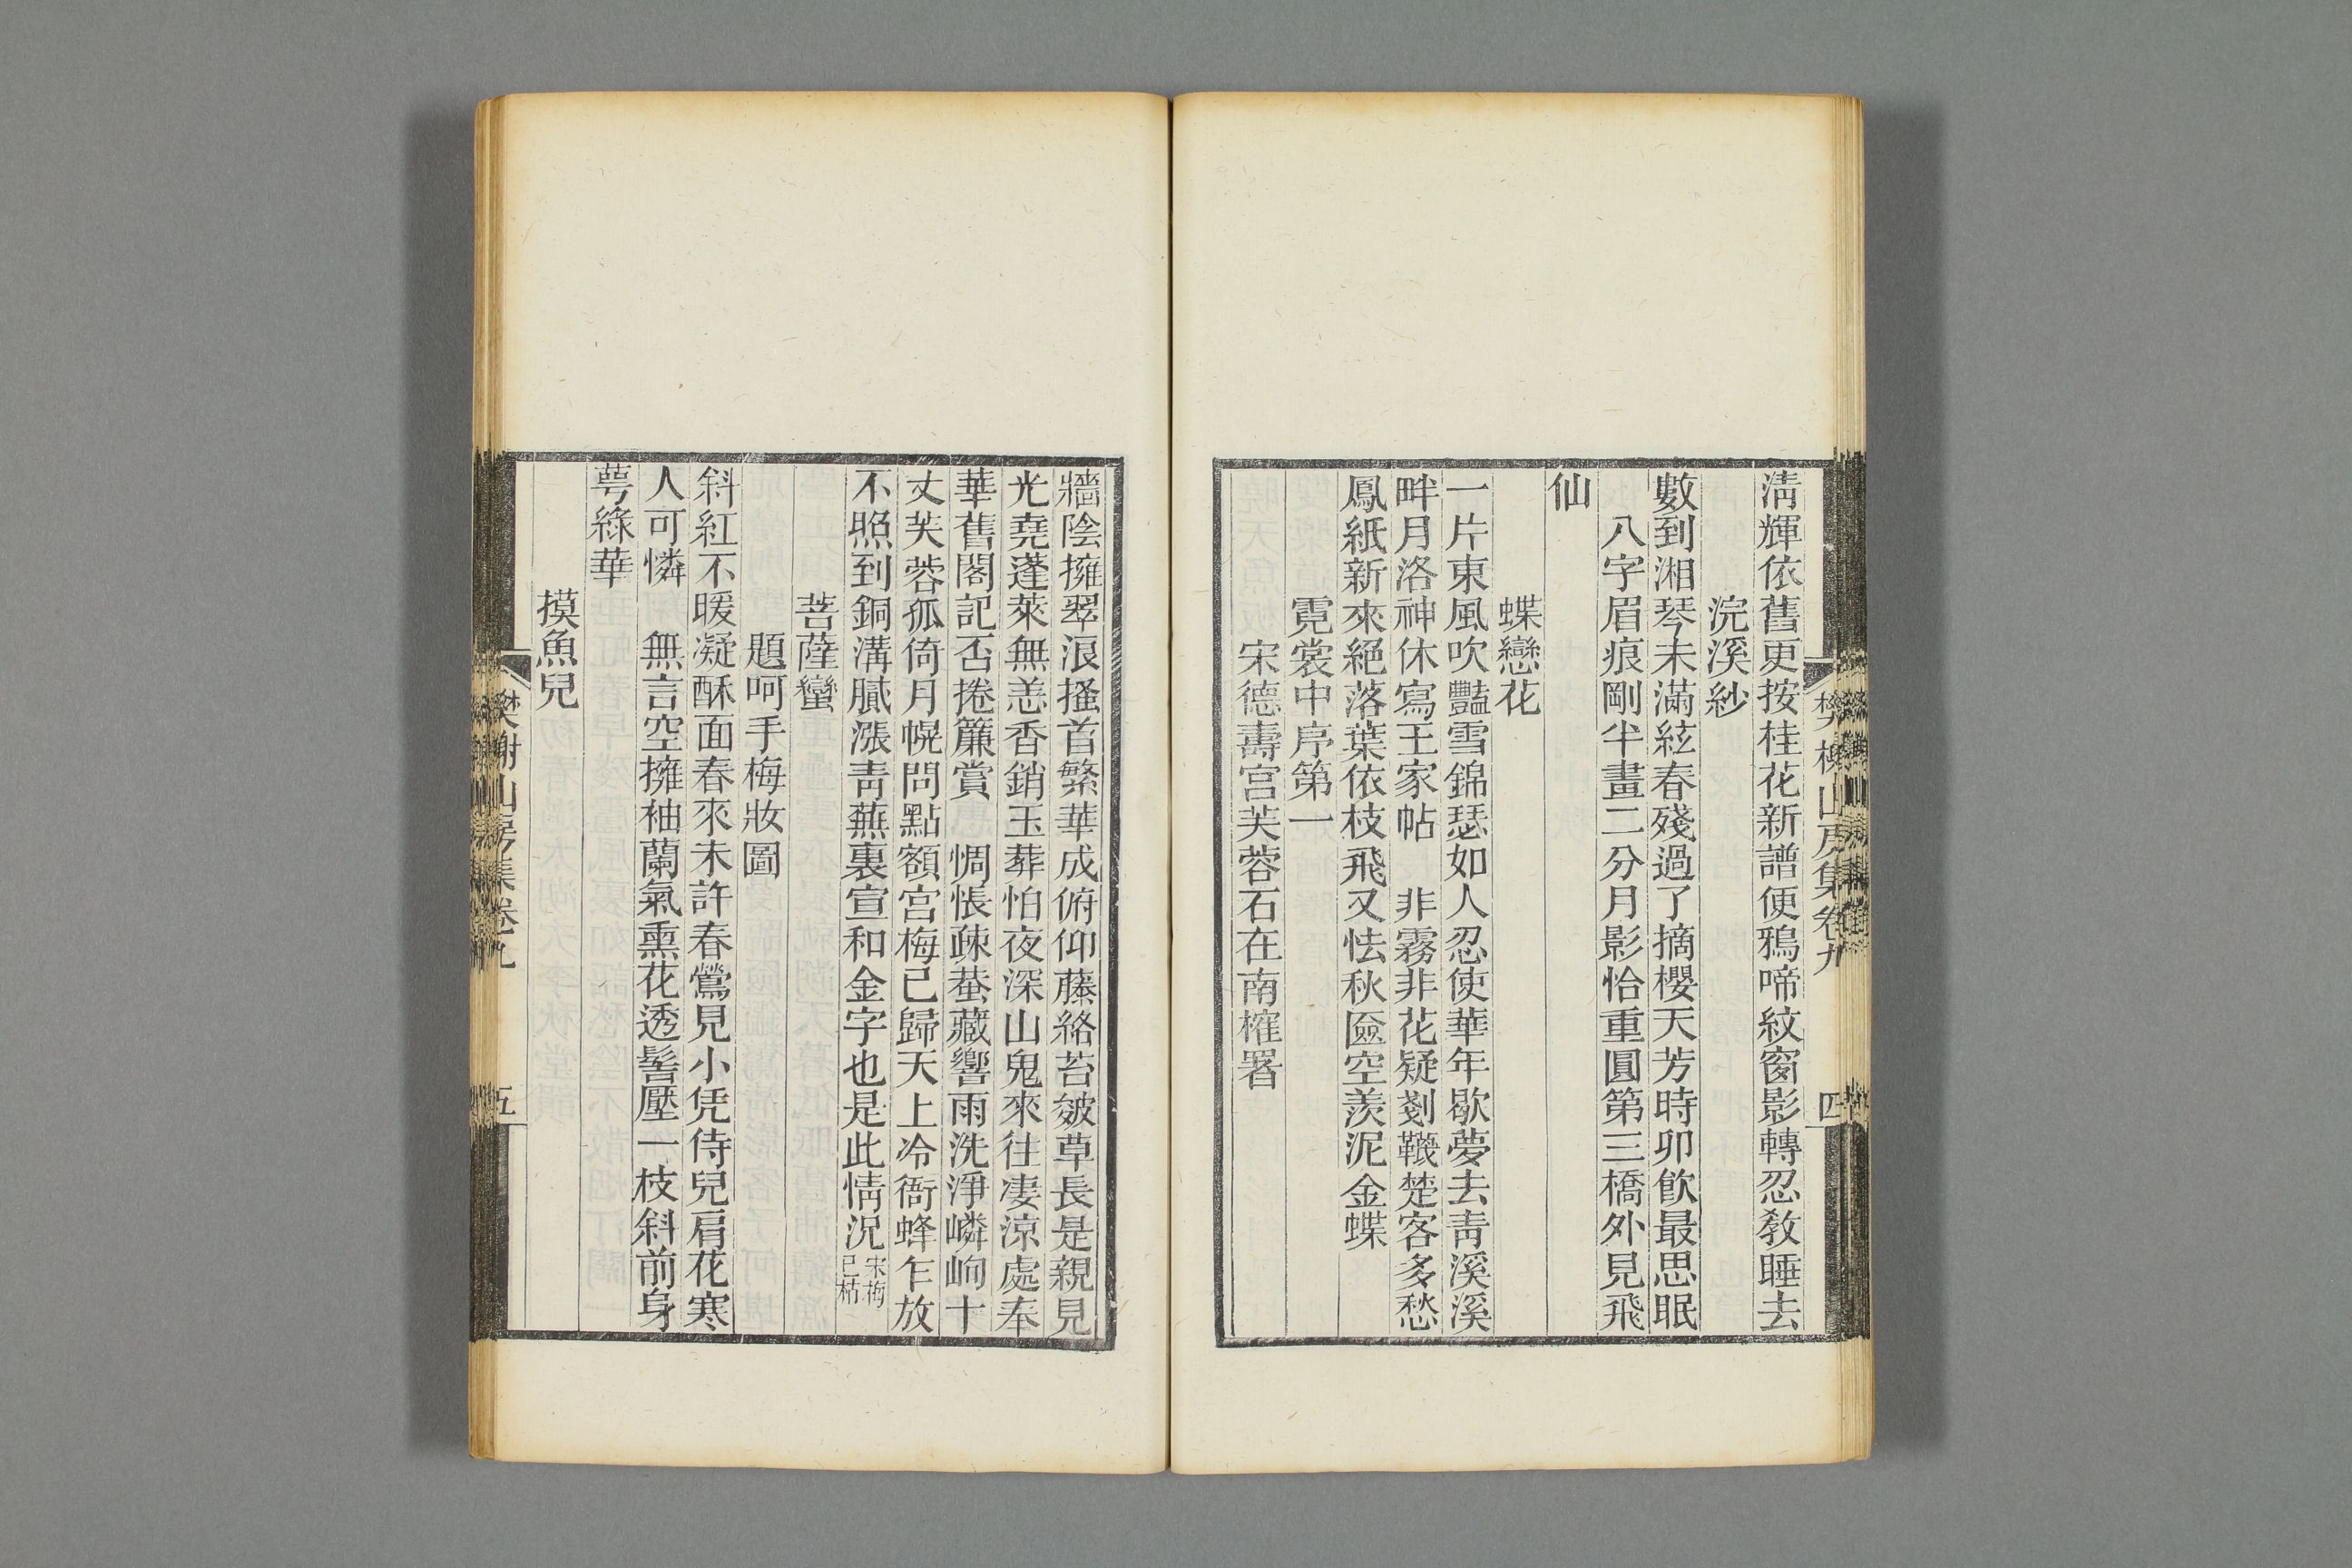 樊榭山房集卷九 四
清輝依舊更按桂花新譜便鴉啼紋窗影轉忍敎睡去
浣溪紗
數到湘琴未滿絃春殘過了摘櫻天芳時卯飮最思眠
八字眉痕剛半畫二分月影恰重圓第三橋外見飛
仙
蝶戀花
一片東風吹豔雪錦瑟如人忍使華年歇夢去靑溪溪
畔月洛神休寫王家帖 非霧非花疑剗韈楚客多愁
鳳紙新來絕落葉依枝飛又怯秋匳空羨泥金蝶
霓裳中序第一
宋德壽宮芙蓉石在南榷署
牆陰擁翠浪搔首繁華成俯仰藤絡苔皴草長是親見
光堯蓬萊無恙香銷玉葬怕夜深山鬼來往凄涼處奉
華舊閣記否捲簾賞 惆悵疎蛬藏響雨洗淨嶙峋十
丈芙蓉孤倚月幌問點額宮梅已歸天上冷衙蜂乍放
不照到銅溝膩漲靑蕪裏宣和金字也是此情况宋梅已枯
菩薩蠻
題呵手梅妝圖
斜紅不暖凝酥面春來未許春鶯見小凭侍兒肩花寒
人可憐 無言空擁袖蘭氣熏花透髻壓一枝斜前身
萼綠華
摸魚兒
樊榭山房集卷九 五